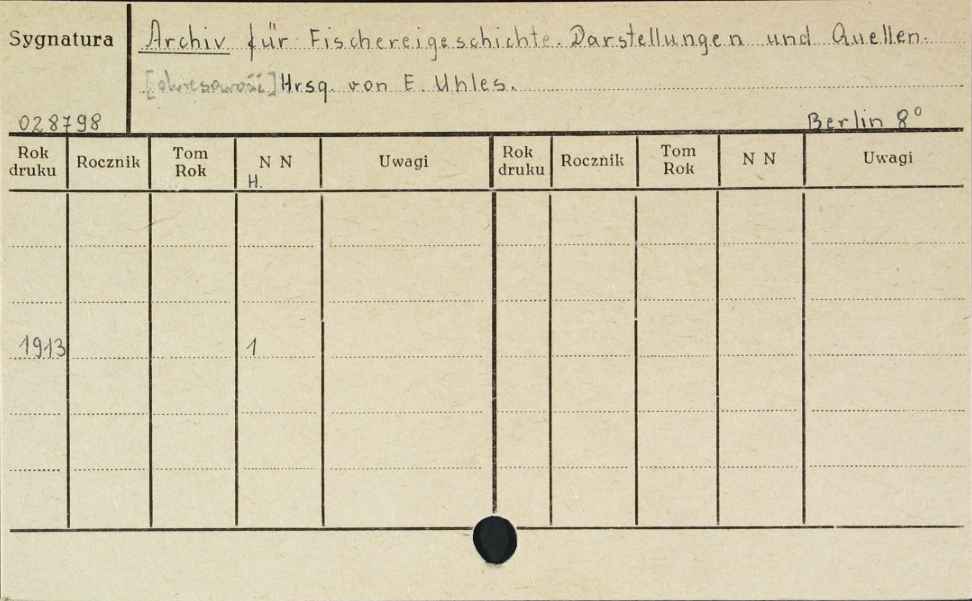 Sygnatura
Archiv für Fischereigeschichte. Darstellungen und Quellen.
Hrsg. von E. Uhles.
028798
Berlin 8°
Rok druku Rocznik Tom Rok N N Uwagi Rok druku Rocznik Tom Rok N N Uwagi
H.
1913 1